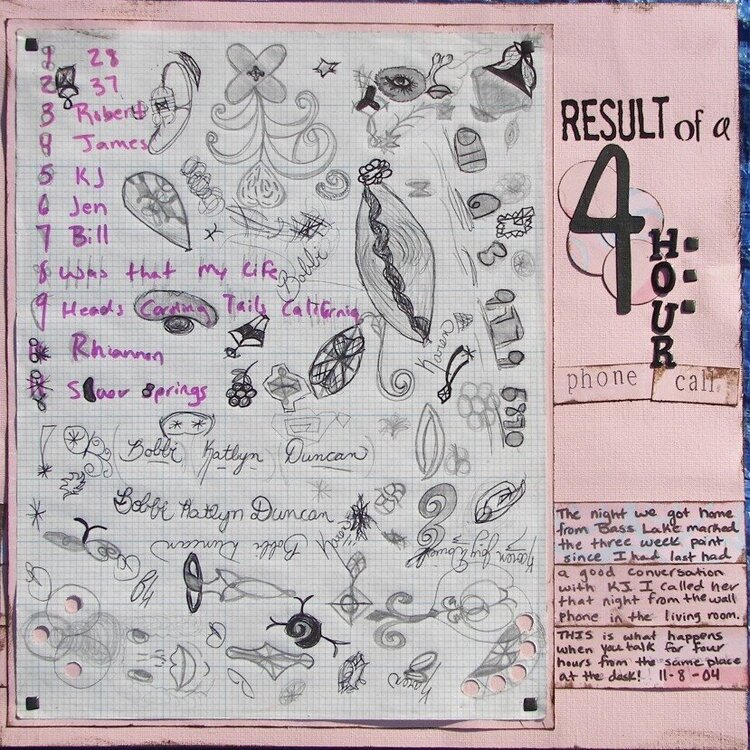 1 28
2 37
3 Robert
4 James
5 KJ
6 Jen
7 Bill
8 was that my life
9 Heads Corning Tails California
Rhiannon
Springs
Bobbi
Karen
Bobbi Katlyn Duncan
Bobbi Katlyn Duncan
Bobbi Duncan
Karen
RESULT of a
4
HOUR
phone call.
The night we got home
from Bass Lake marked
the three week point
since I had last had
a good conversation
with KJ. I called her
that night from the wall
phone in the living room.
THIS is what happens
when you talk for four
hours from the same place
at the desk! 11-8-04